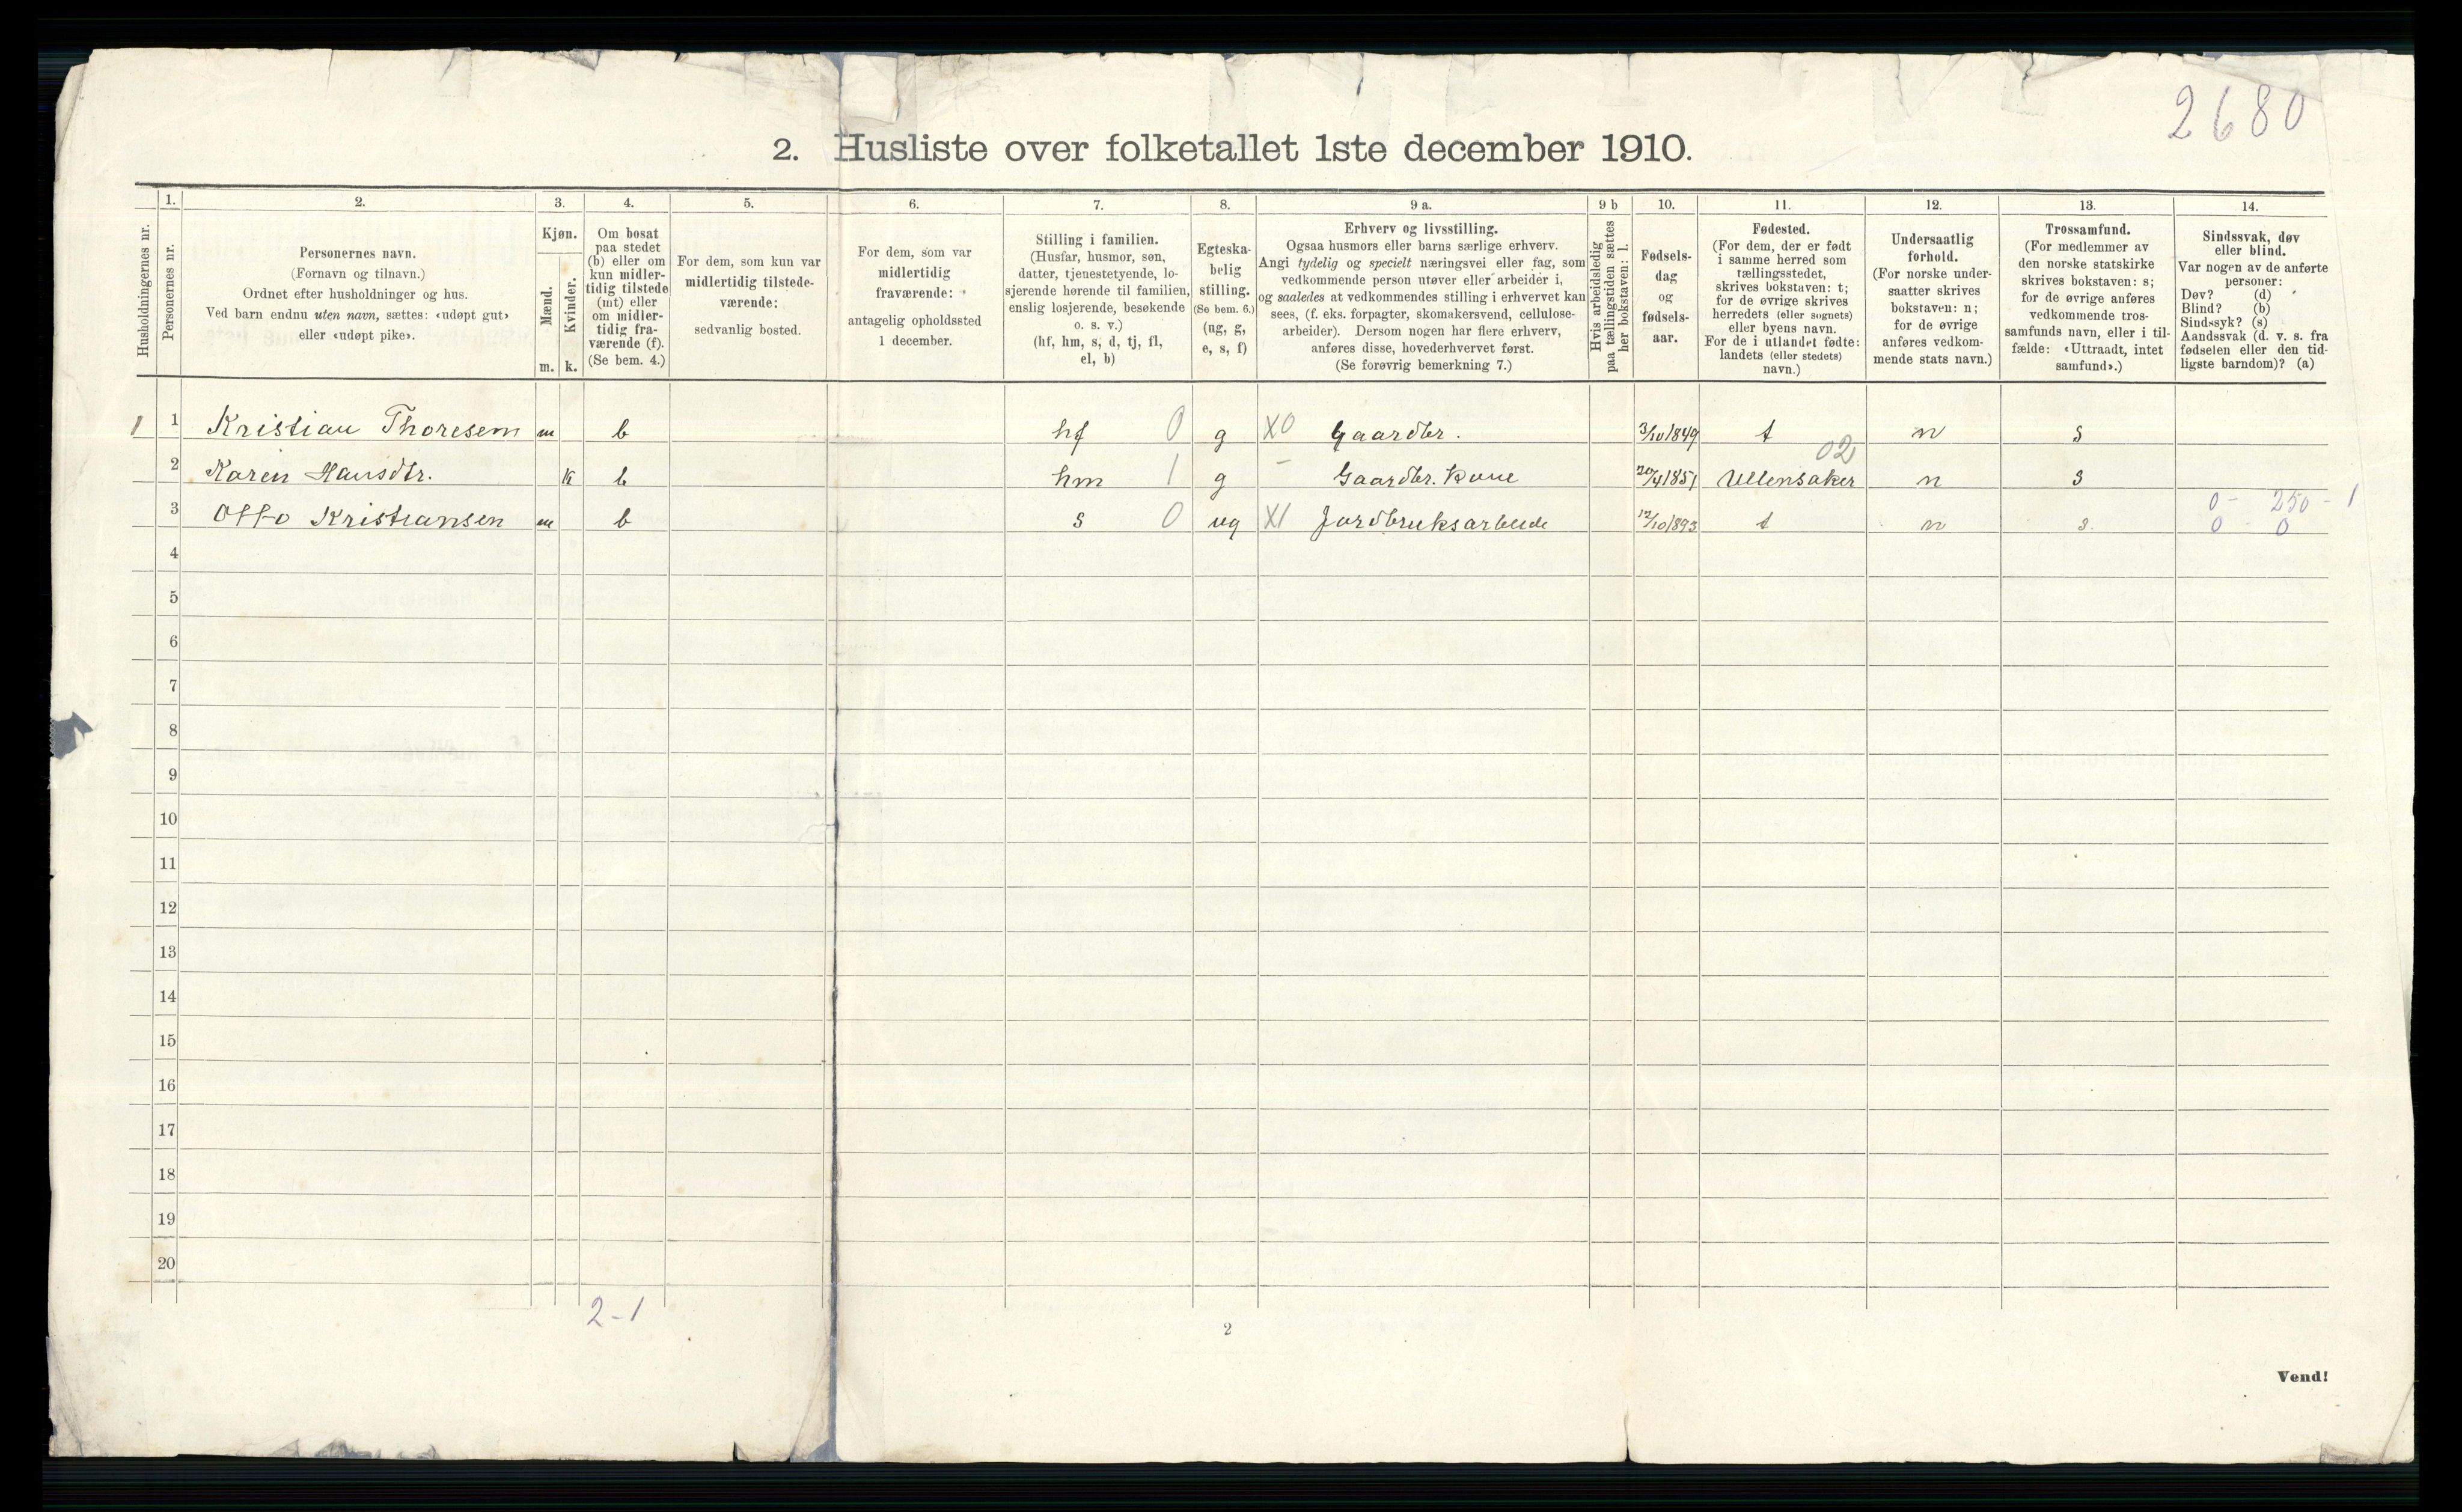 2680
2. Husliste over folketallet 1ste december 1910.
Husholdningernes nr.
1.
Personernes nr.
2.
Personernes navn.
(Fornavn og tilnavn.)
Ordnet efter husholdninger og hus.
Ved barn endnu uten navn, sættes: «udøpt gut»
eller «udøpt pike».
3.
Kjøn.
Mænd.
Kvinder.
m. k.
4.
Om bosat
paa stedet
(b) eller om
kun midler-
tidig tilstede
(mt) eller
om midler-
tidig fra-
værende (f).
(Se bem. 4.)
5.
For dem, som kun var
midlertidig tilstede-
værende:
sedvanlig bosted.
6.
For dem, som var
midlertidig
fraværende:
antagelig opholdssted
1 december.
7.
Stilling i familien.
(Husfar, husmor, søn,
datter, tjenestetyende, lo-
sjerende hørende til familien,
enslig losjerende, besøkende
o. s. v.)
(hf, hm, s, d, tj, fl,
el, b)
8.
Egteska-
belig
stilling.
(Se bem. 6.)
(ug, g,
e, s, f)
9 a.
Erhverv og livsstilling.
Ogsaa husmors eller barns særlige erhverv.
Angi tydelig og specielt næringsvei eller fag, som
vedkommende person utøver eller arbeider i,
og saaledes at vedkommendes stilling i erhvervet kan
sees, (f. eks. forpagter, skomakersvend, cellulose-
arbeider). Dersom nogen har flere erhverv,
anføres disse, hovederhvervet først.
(Se forøvrig bemerkning 7.)
9 b
Hvis arbeidsledig
paa tællingstiden sættes
her bokstaven: l.
10.
Fødsels-
dag
og
fødsels-
aar.
11.
Fødested.
(For dem, der er født
i samme herred som
tællingsstedet,
skrives bokstaven: t;
for de øvrige skrives
herredets (eller sognets)
eller byens navn.
For de i utlandet fødte:
landets (eller stedets)
navn.)
12.
Undersaatlig
forhold.
(For norske under-
saatter skrives
bokstaven: n;
for de øvrige
anføres vedkom-
mende stats navn.)
13.
Trossamfund.
(For medlemmer av
den norske statskirke
skrives bokstaven: s;
for de øvrige anføres
vedkommende tros-
samfunds navn, eller i til-
fælde: «Uttraadt, intet
samfund».)
14.
Sindssvak, døv
eller blind.
Var nogen av de anførte
personer:
Døv? (d)
Blind? (b)
Sindssyk? (s)
Aandssvak (d. v. s. fra
fødselen eller den tid-
ligste barndom)? (a)
1 1 Kristian Thoresen m b hf 0 g X0 Gaardbr. 3/10 1849 t n s
02
2 Karen Hansdtr. k b hm 1 g - Gaardbr. kone 20/4 1851 Ullensaker n s
0 - 250 - 1
3 Otto Kristiansen m b s 0 ug X1 Jordbruksarbeide 12/10 1893 t n s. 0 - 0
4
5
6
7
8
9
10
11
12
13
14
15
16
17
18
19
20
2-1
2
Vend!